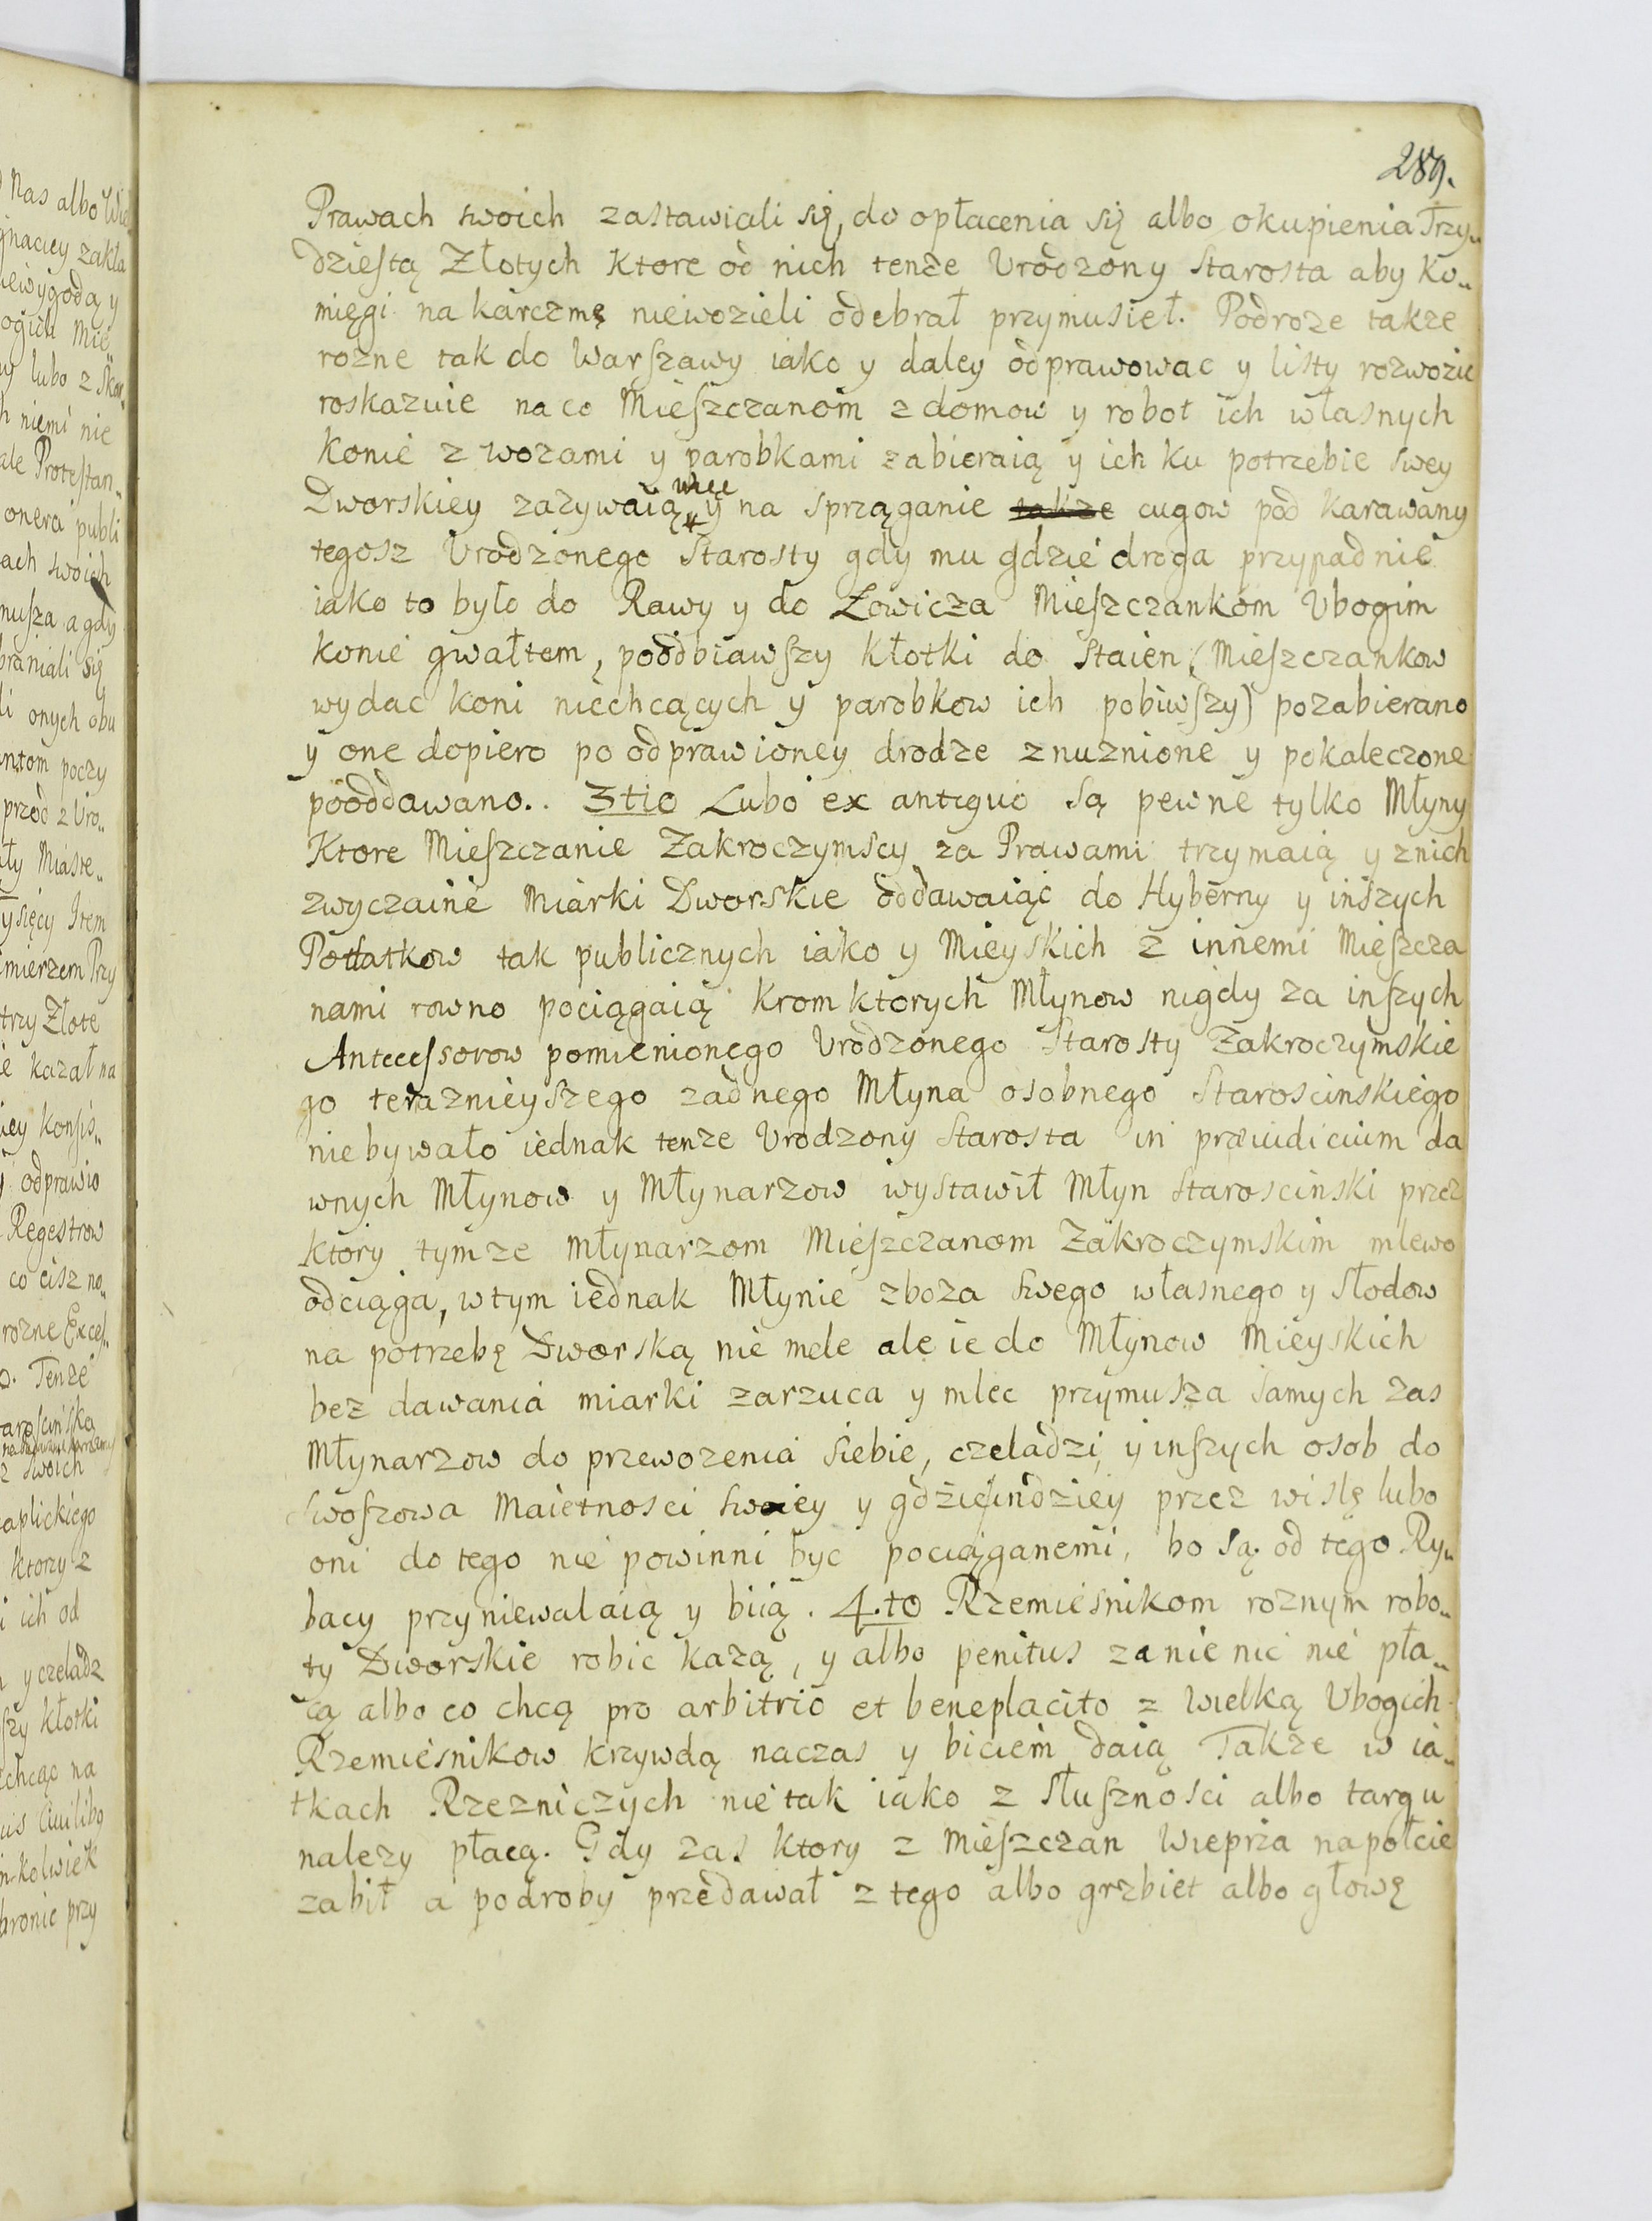 289.
Prawach swoich zastawiali się, do opłacenia się albo okupienia Trzy„
dziestą Złotych ktore od nich tenze Urodzony Starosta aby ko„
mięgi na karczmę niewozieli odebrał przymusieł. Podroze takze
rozne tak do Warszawy iako y daley odprawowac y listy rozwozic
roskazuie na co Mieszczanom z domow y robot ich własnych
konie z wozami y parobkami zabieraią y ich ku potrzebie swey
Dworskiey zazywaią wiec y na sprząganie takze cugow pod karawany
tegosz Urodzonego Starosty gdy mu gdzie droga przypadnie
iako to było do Rawy y do Łowicza Mieszczankom Ubogim
konie gwałtem, poodbiawszy kłotki do Staien (Mieszczankow
wydac koni niechcących y parobkow ich pobiwszy) pozabierano
y one dopiero po odprawioney drodze znuznione y pokaleczone
pooddawano.. 3tio Lubo ex antiquo są pewne tylko Młyny
Ktore Mieszczanie Zakroczymscy za Prawami trzymaią y znich
zwyczaine Miarki Dworskie oddawaiąc do Hyberny y inszych
Podatkow tak publicznych iako y Mieyskich z innemi Mieszcza
nami rowno pociągaią krom ktorych Młynow nigdy za inszych
Antecessorow pomienionego Urodzonego Starosty Zakroczymskie
go teraznieyszego zadnego Młyna osobnego Staroscinskiego
niebywało iednak tenze Urodzony Starosta in præiudicium da
wnych Młynow y Młynarzow wystawił Młyn Staroscinski przez
ktory tymze młynarzom Mieszczanom Zakroczymskim mlewo
odciąga, w tym iednak Młynie zboza swego własnego y Słodow
na potrzebę Dworską nie mele ale ie do Młynow Mieyskich
bez dawania miarki zarzuca y mlec przymusza samych zas
Młynarzow do przewozenia siebie, czeladzi y inszych osob do
Swoszowa Maietnosci swoiey y gdzieindziey przez wislę lubo
oni do tego nie powinni byc pociąganemi, bo są od tego Ry„
bacy przyniewalaią y biią. 4.to Rzemiesnikom roznym robo„
ty Dworskie robic kazą, y albo penitus zanie nic nie pła„
cą albo co chcą pro arbitrio et beneplacito z wielką Ubogich
Rzemiesnikow krzywdą naczas y biciem daią Takze w ia„
tkach Rzezniczych nietak iako z Słusznosci albo targu
nalezy płacą. Gdy zas ktory z Mieszczan wieprza napołcie
zabił a podroby przedawał z tego albo grzbiet albo głowę